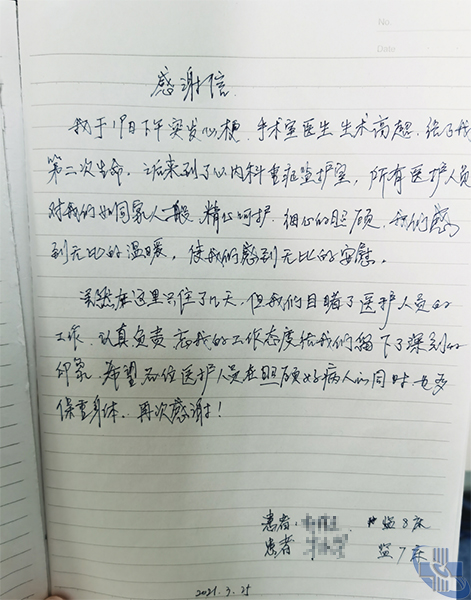 No.
Date
感谢信
我于19日下午突发心梗，手术室医生手术高超，给了我
第二次生命。后来到了心内科重症监护室，所有医护人员
对我们如同家人一般，精心呵护，细心的照顾，我们感
到无比的温暖，使我们感到无比的安慰。
虽然在这里只住了几天，但我们目睹了医护人员的
工作，认真负责，忘我的工作态度给我们留下了深刻的
印象，希望各位医护人员在照顾好病人的同时也多
保重身体，再次感谢！
患者： 监8床
患者 监7床
2021.3.25